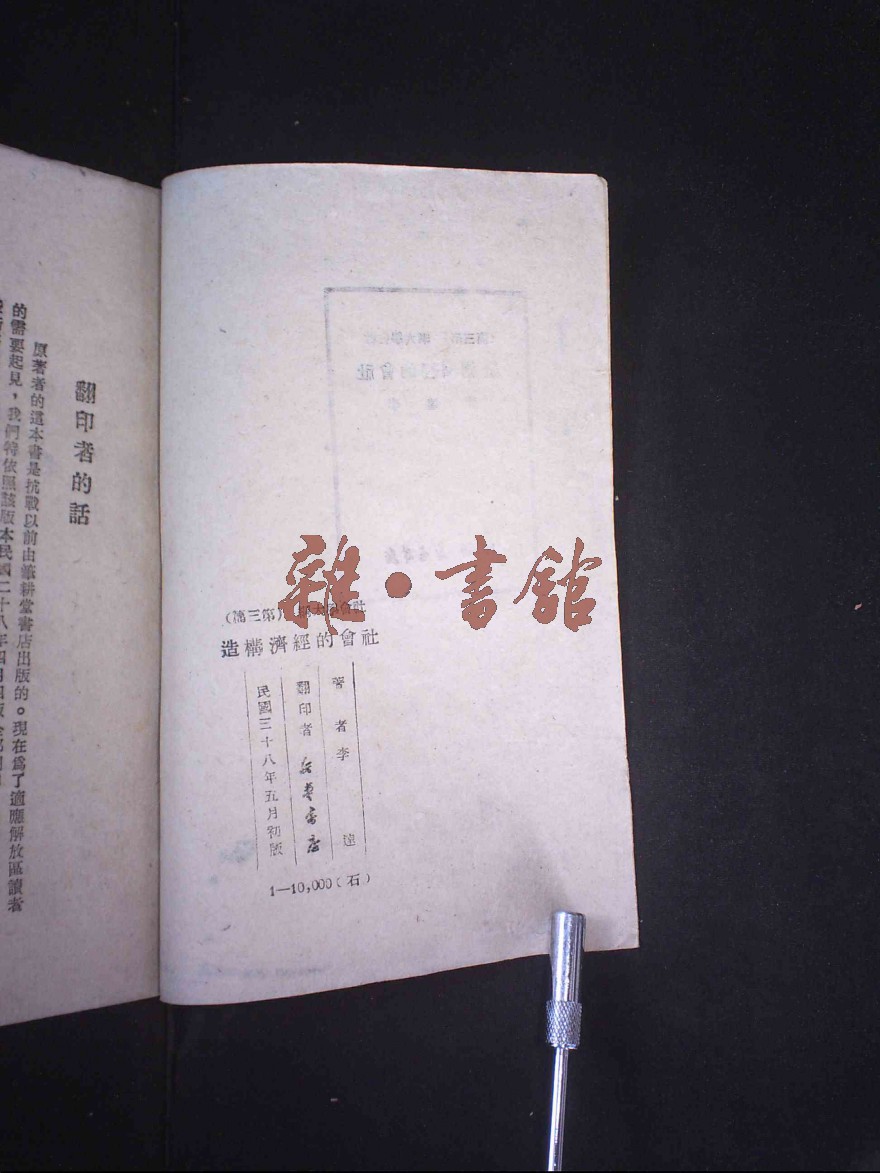 雜・書館
社會學大綱(第三篇)
社會的經濟構造
著者李達
翻印者 新華書店
民國三十八年五月初版
1—10,000(石)
翻印者的話
原著者的這本書是抗戰以前由筆耕堂書店出版的。現在爲了適應解放區讀者
的需要起見,我們特依照該版本民國二十八年四月四版